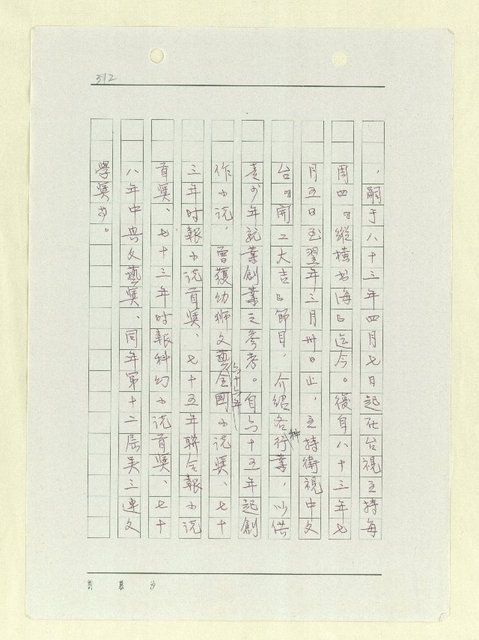 312
，嗣于八十三年四月七日起在台視主持每
周四《縱橫書海》迄今。後自八十三年七
月五日至翌年三月卅日止，主持衛視中文
台《開工大吉》節目，介紹各行種業，以供
青少年就業創業之參考。自六十五年起創
作小说，曾獲幼獅文藝六十六年全國小说獎、七十
三年时報小说首獎、七十五年聯合報小说
首獎、七十三年时報科幻小说首獎、七十
八年中興文藝獎、同年第十二屆吳三連文
學獎等。
劉慕沙